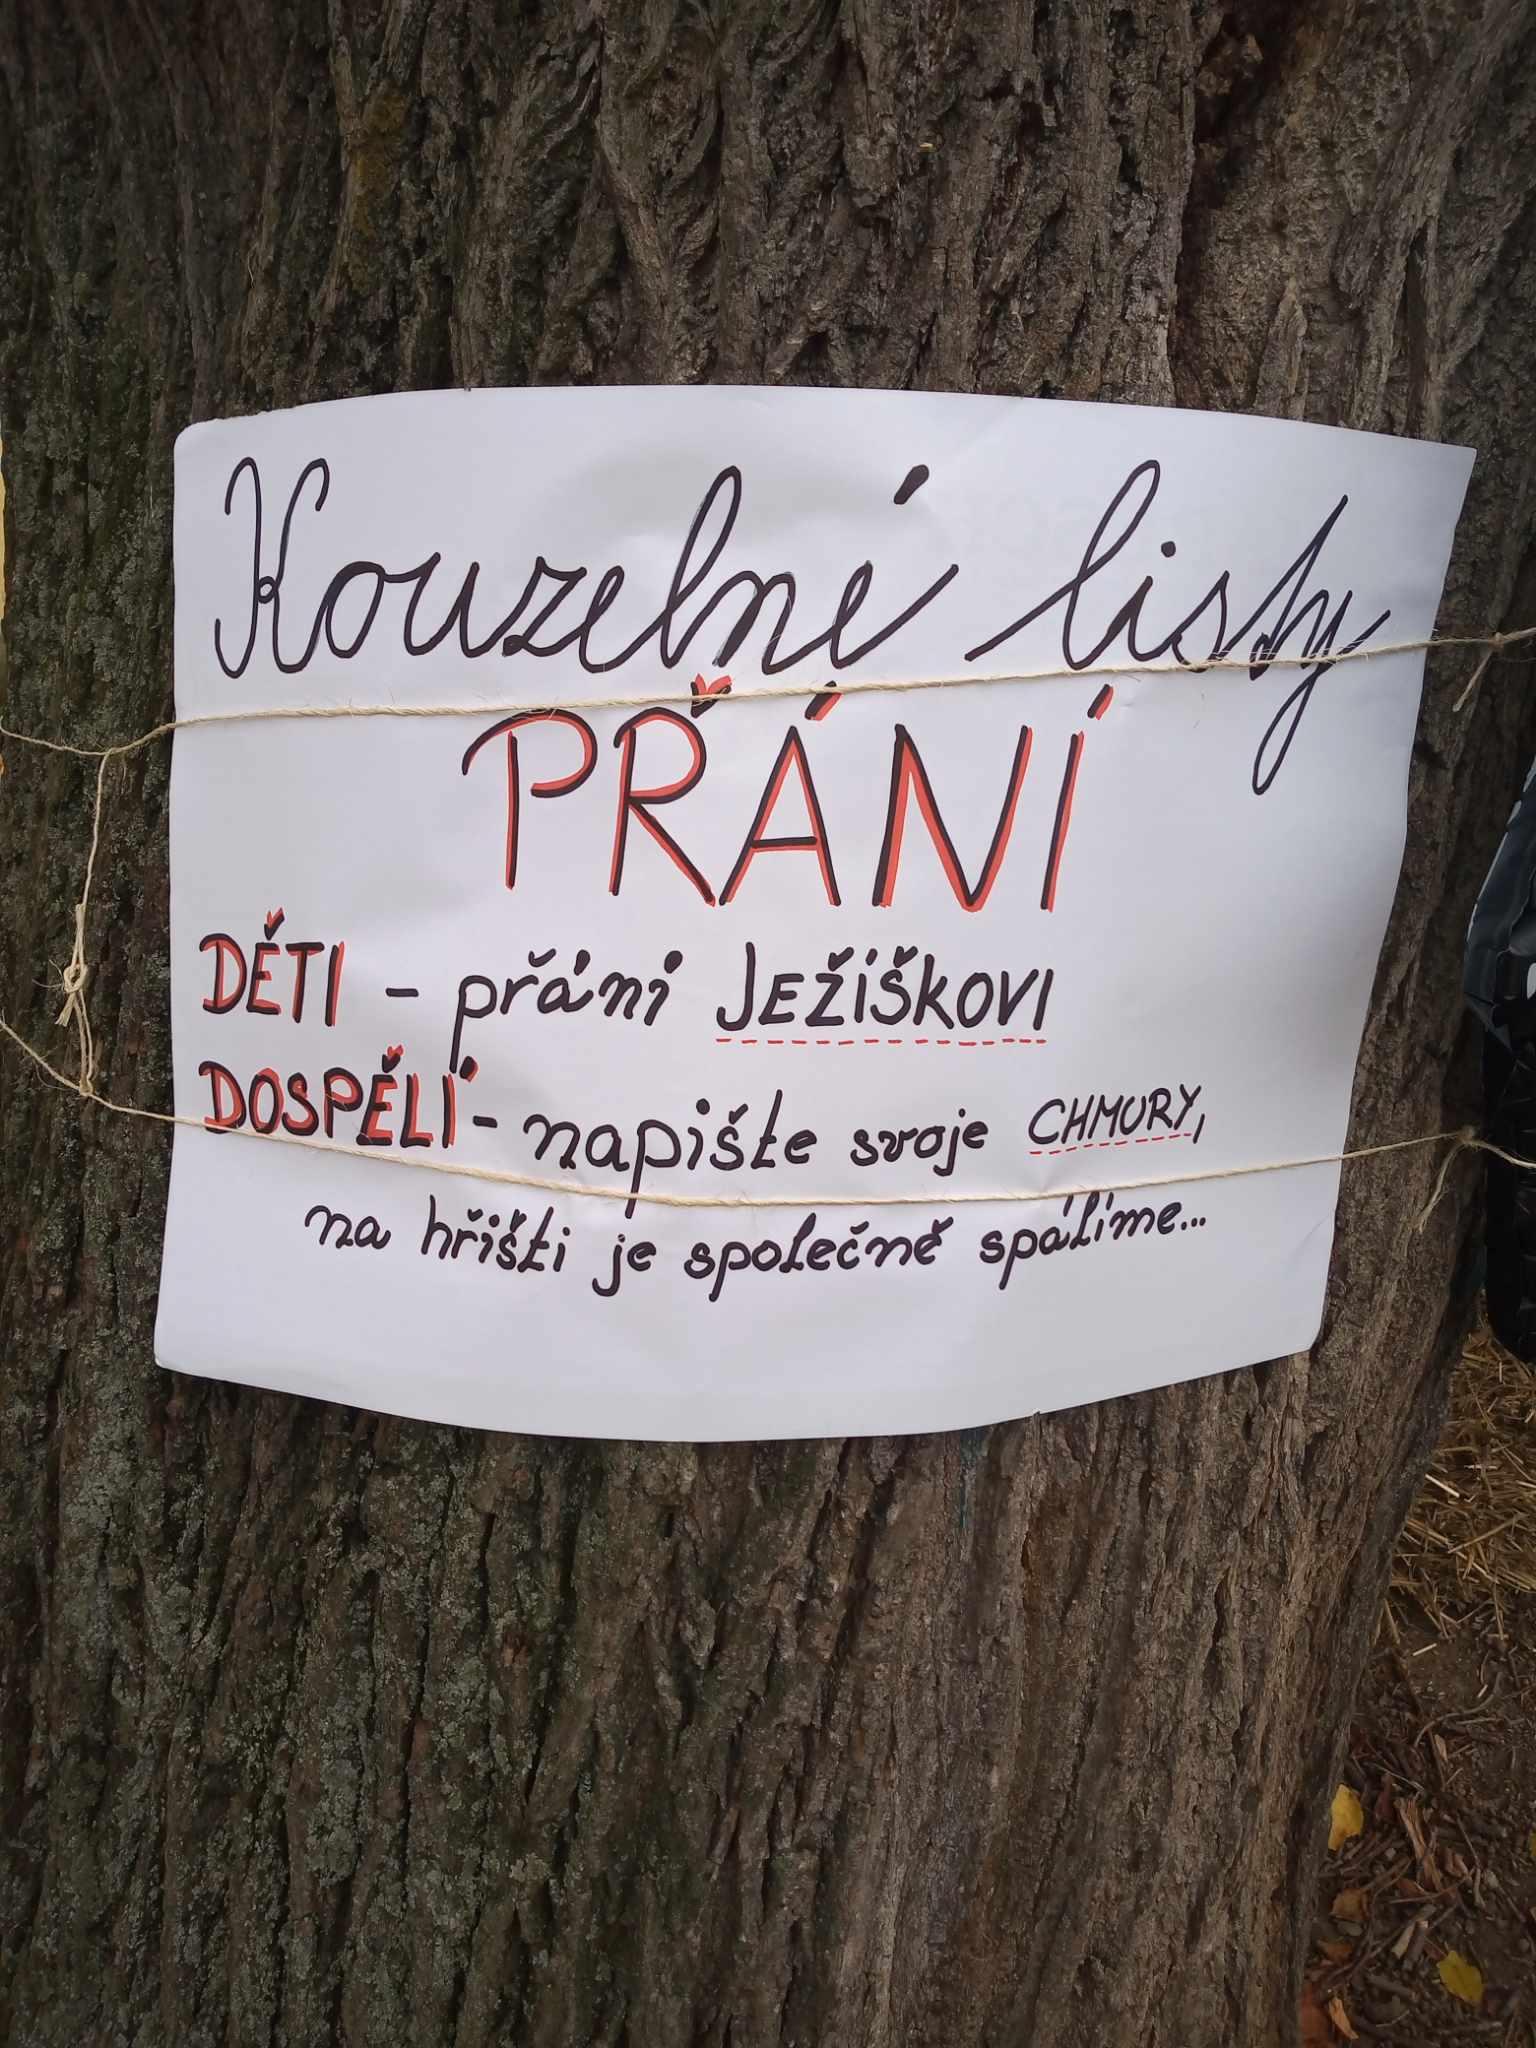 Kouzelné listy
PŘÁNÍ
DĚTI - přání JEŽÍŠKOVI
DOSPĚLÍ - napište svoje CHMURY,
na hřišti je společně spálíme...